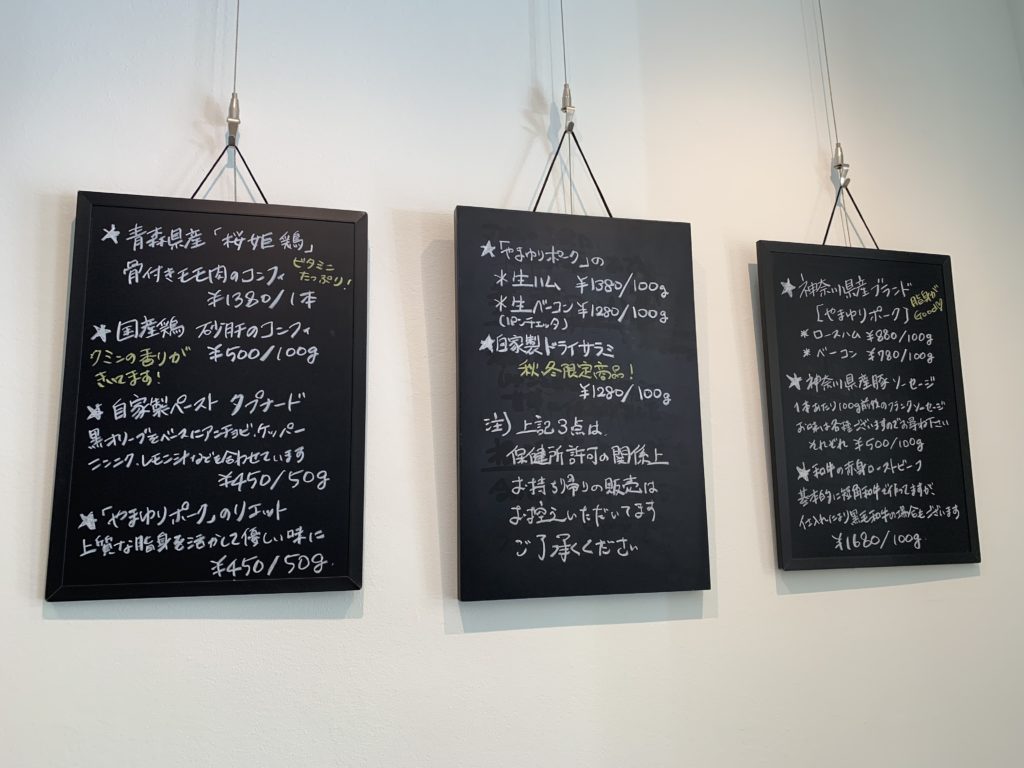 ★青森県産「桜姫鶏」
骨付きモモ肉のコンフィ
ビタミン
たっぷり!
¥1380/1本
★国産鶏 砂肝のコンフィ
クミンの香りが
きいてます!
¥500/100g
★自家製ペースト タプナード
黒オリーブをベースにアンチョビ、ケッパー
ニンニク、レモン汁なども合わせています
¥450/50g
★「やまゆりポーク」のリエット
上質な脂身を活かして優しい味に
¥450/50g.
★「やまゆりポーク」の
*生ハム ¥1380/100g
*生ベーコン ¥1280/100g
(パンチェッタ)
★自家製ドライサラミ
秋、冬限定商品!
¥1280/100g
注)上記3点は、
保健所許可の関係上
お持ち帰りの販売は
お控えいただいてます
ご了承ください
★神奈川県産ブランド
[やまゆりポーク]
脂身が
Good♡
*ロースハム ¥880/100g
*ベーコン ¥780/100g
★神奈川県産豚ソーセージ
1本あたり100g前後のフランクソーセージ
お味は各種ございますのでお尋ね下さい
それぞれ ¥500/100g
★和牛の赤身ローストビーフ
基本的に短角和牛で作ってますが、
仕入れにより黒毛和牛の場合もございます
¥1680/100g.